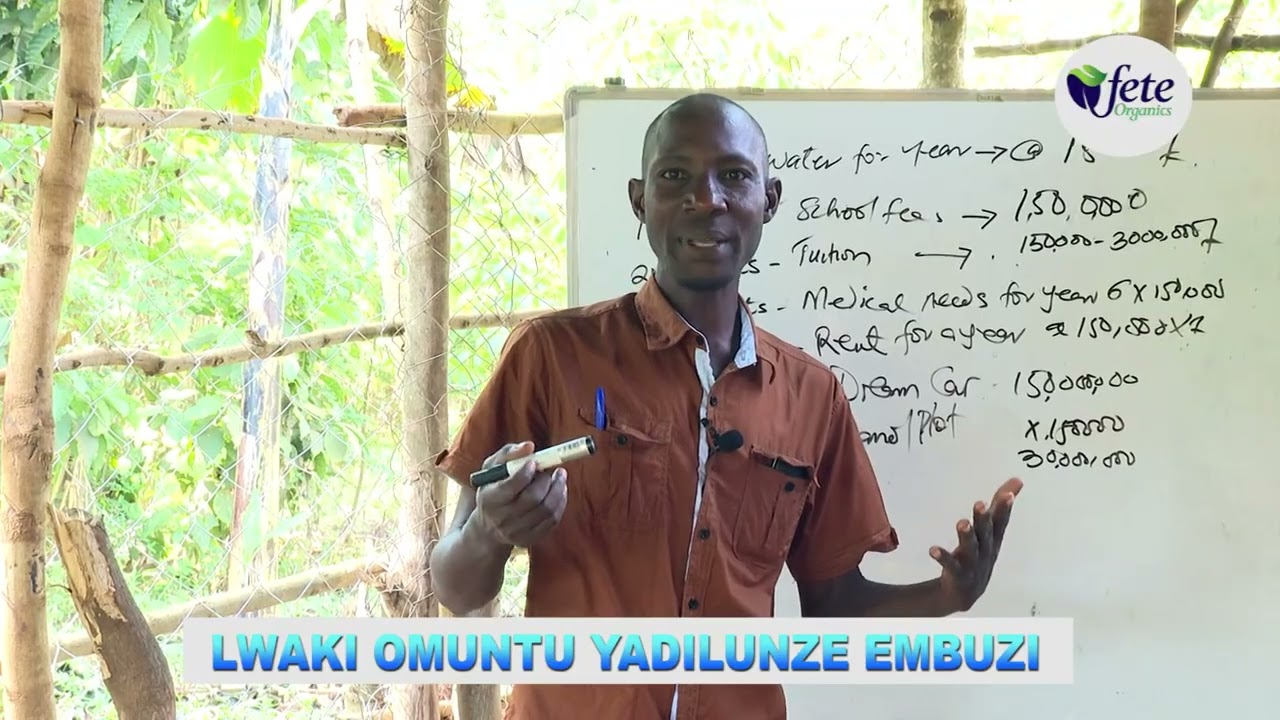 fete
Organics
water for year → @ 15 k.
School fees → 1,50,0000
2 s - Tuition → . 150,000 - 3000,000/
ts - Medical needs for year 6 X 150,000
- Rent for a year 150,000 X 1
Dream Car 150,000,00
and/Plot X 150000
30,000,000
LWAKI OMUNTU YADILUNZE EMBUZI